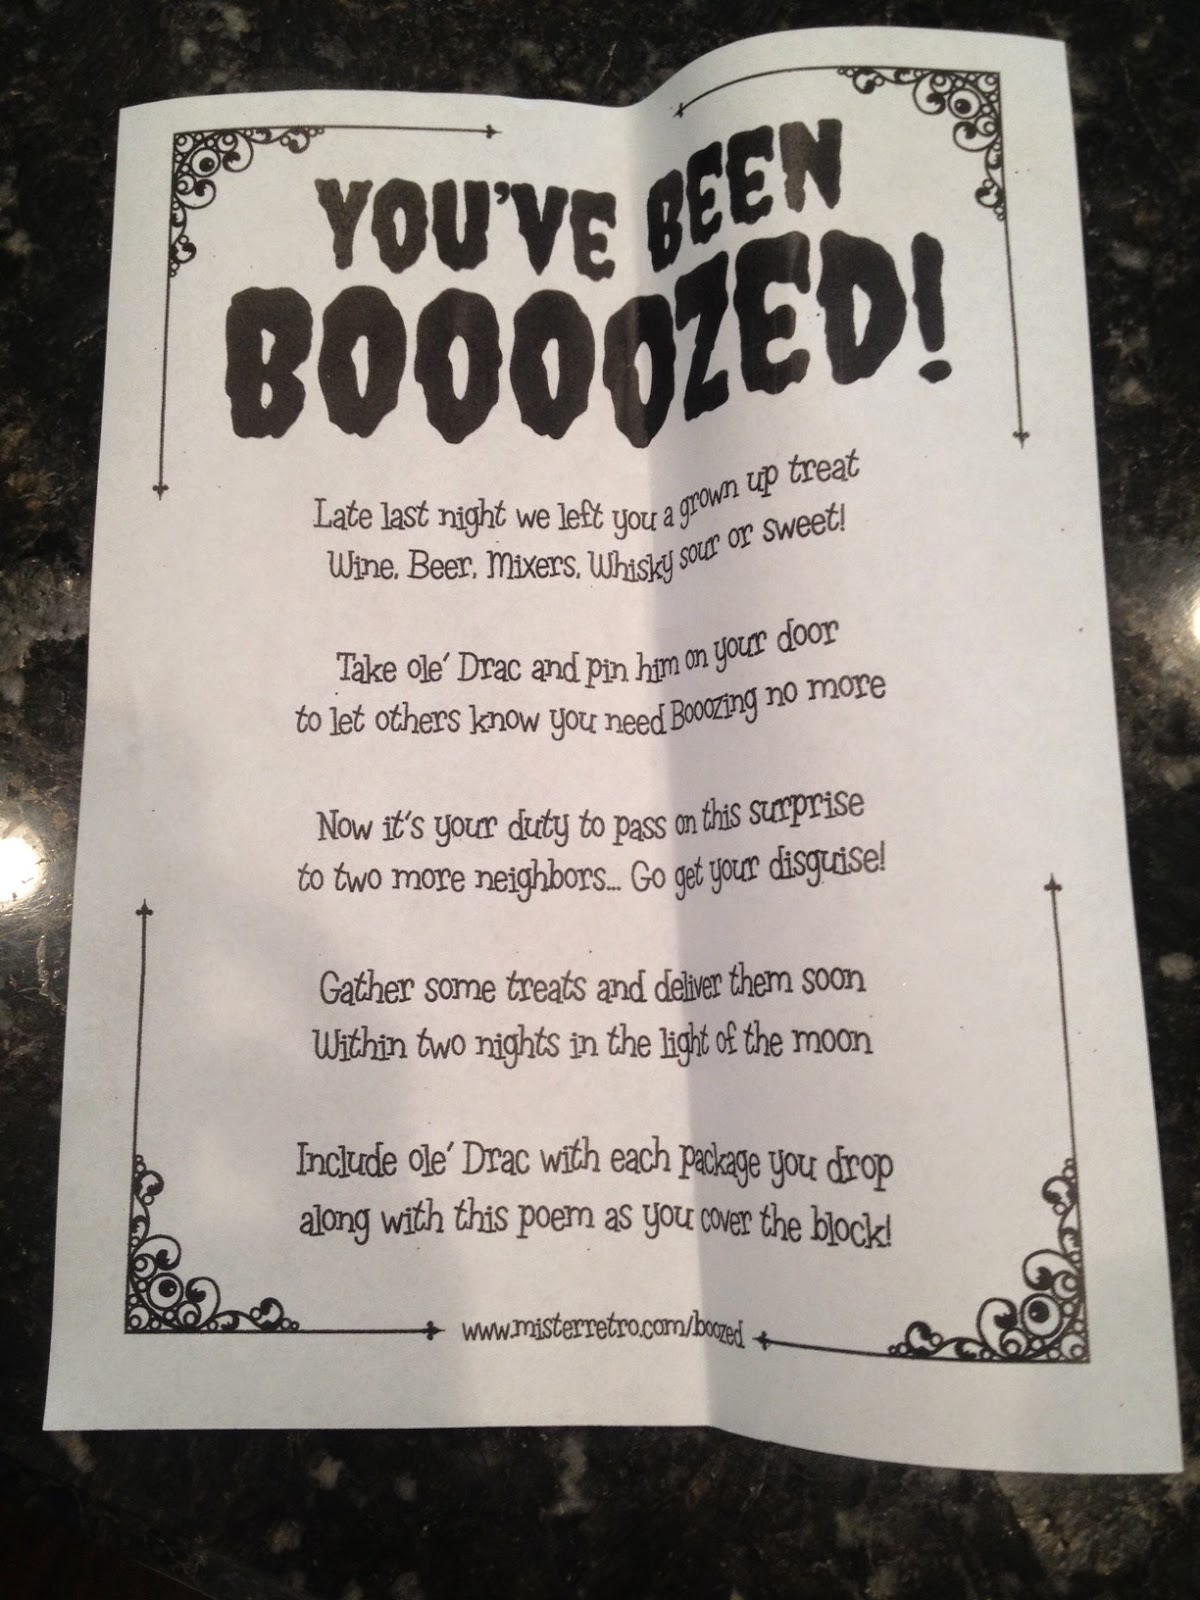 YOU'VE BEEN
BOOOOZED!
Late last night we left you a grown up treat
Wine, Beer, Mixers, Whisky sour or sweet!
Take ole' Drac and pin him on your door
to let others know you need Booozing no more
Now it's your duty to pass on this surprise
to two more neighbors... Go get your disguise!
Gather some treats and deliver them soon
Within two nights in the light of the moon
Include ole' Drac with each package you drop
along with this poem as you cover the block!
www.misterretro.com/boozed